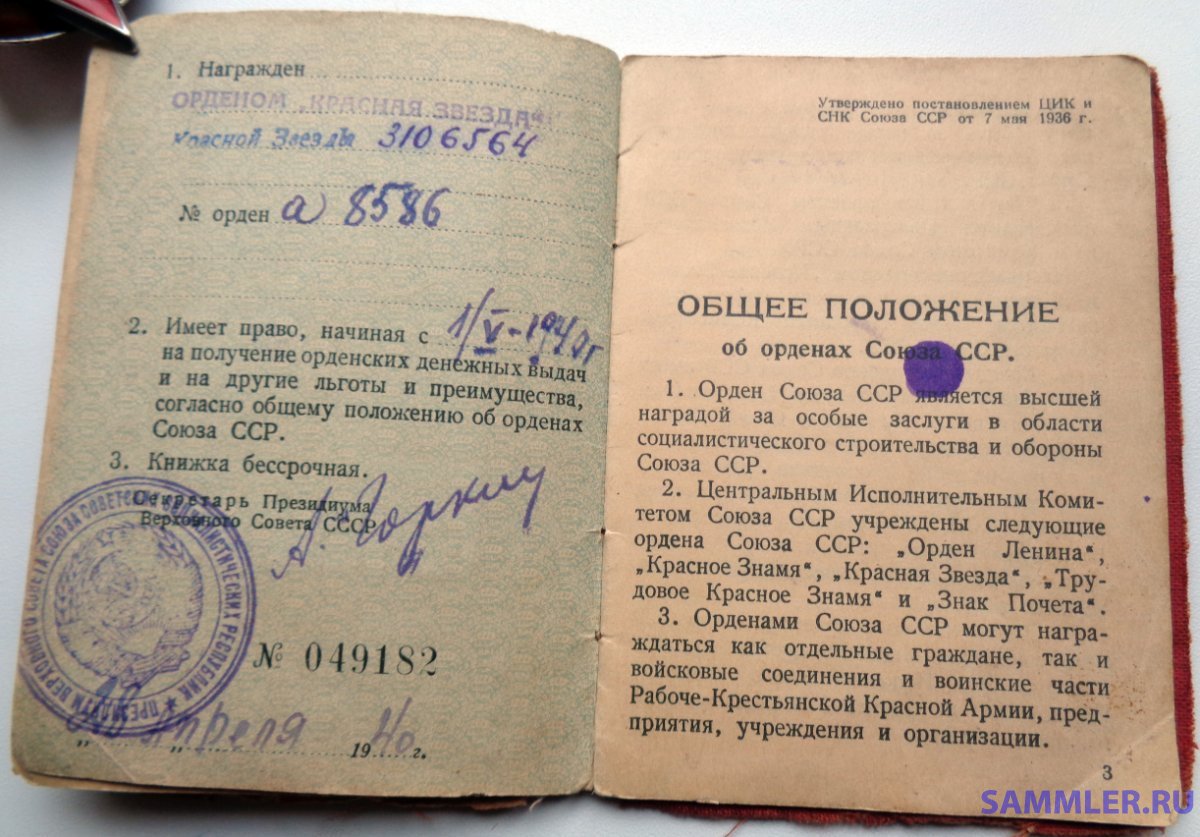 1. Награжден
ОРДЕНОМ „КРАСНАЯ ЗВЕЗДА“
Красной Звезды 3106564
№ орден а 8586
2. Имеет право, начиная с 1/V-1940г
на получение орденских денежных выдач
и на другие льготы и преимущества,
согласно общему положению об орденах
Союза ССР.
3. Книжка бессрочная.
Секретарь Президиума
Верховного Совета СССР
А. Горкин
ПРЕЗИДИУМ ВЕРХОВНОГО СОВЕТА СОЮЗА СОВЕТСКИХ СОЦИАЛИСТИЧЕСКИХ РЕСПУБЛИК
№ 049182
„ “ апреля 1940 г.
Утверждено постановлением ЦИК и
СНК Союза ССР от 7 мая 1936 г.
ОБЩЕЕ ПОЛОЖЕНИЕ
об орденах Союза ССР.
1. Орден Союза ССР является высшей
наградой за особые заслуги в области
социалистического строительства и обороны
Союза ССР.
2. Центральным Исполнительным Коми-
тетом Союза ССР учреждены следующие
ордена Союза ССР: „Орден Ленина“,
„Красное Знамя“, „Красная Звезда“, „Тру-
довое Красное Знамя“ и „Знак Почета“.
3. Орденами Союза ССР могут награ-
ждаться как отдельные граждане, так и
войсковые соединения и воинские части
Рабоче-Крестьянской Красной Армии, пред-
приятия, учреждения и организации.
3
SAMMLER.RU